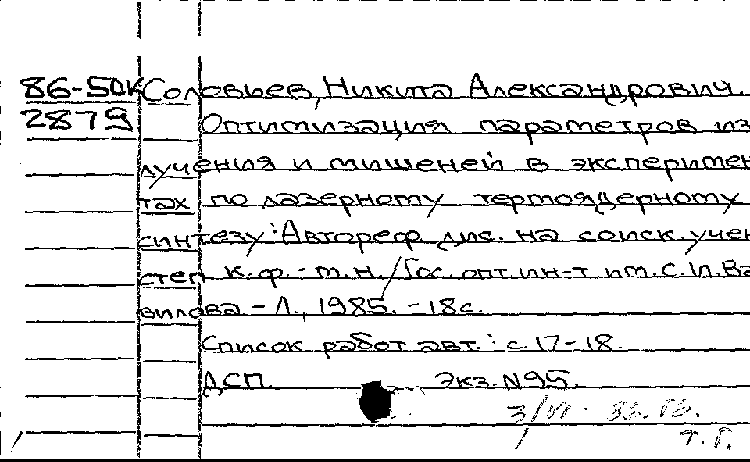 86-50к Соловьев, Никита Александрович.
2879 Оптимизация параметров из
лучения и мишеней в эксперимен
тах по лазерному термоядерному
синтезу: Автореф. дис. на соиск. учен.
степ. к.ф.-т.н. / Гос. опт. ин-т им. С.И. Ва
вилова - Л., 1985. - 18с.
Список работ авт.: с. 17-18.
ДСП. Экз. N95.
т. Г.